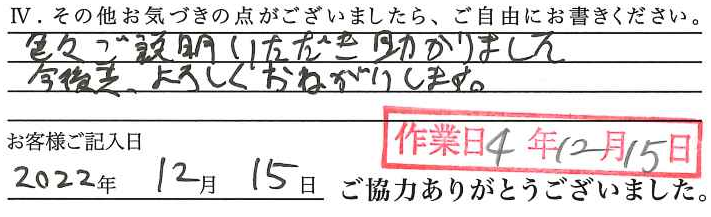 Ⅳ. その他お気づきの点がございましたら、ご自由にお書きください。
色々ご説明いただき助かりました
今後共、よろしくおねがいします。
作業日4年12月15日
お客様ご記入日
2022年 12月 15日 ご協力ありがとうございました。